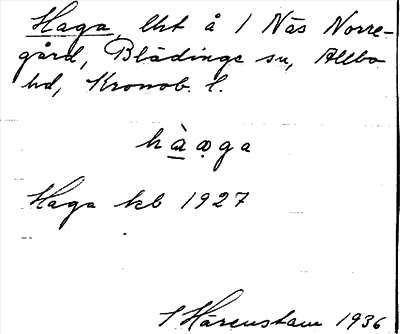 Haga, lht å 1 Näs Norre-
gård, Blädinge sn, Allbo
hd, Kronob. l.
hàạga
Haga kb 1927
Härenstam 1936